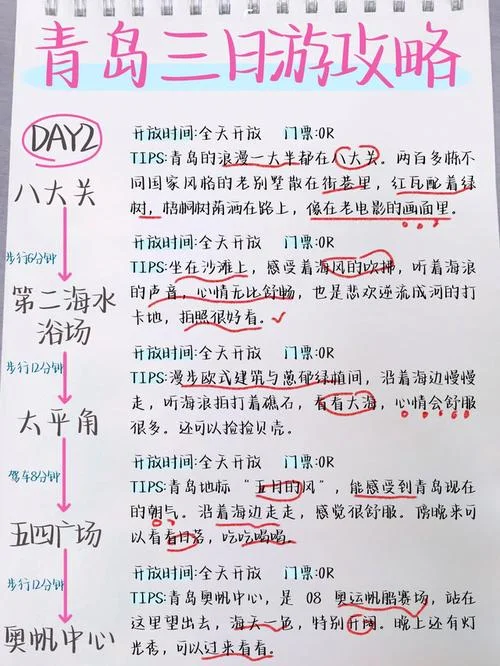 青岛三日游攻略
DAY2
八大关
开放时间:全天开放 门票:0R
TIPS:青岛的浪漫一大半都在八大关。两百多栋不
同国家风格的老别墅散在街巷里，红瓦配着绿
树，梧桐树荫洒在路上，像在老电影的画面里。
步行6分钟
第二海水
浴场
开放时间:全天开放 门票:0R
TIPS:坐在沙滩上，感受着海风的吹拂，听着海浪
的声音，心情无比舒畅，也是悲欢逆流成河的打
卡地，拍照很好看。
步行12分钟
太平角
开放时间:全天开放 门票:0R
TIPS:漫步欧式建筑与葱郁绿植间，沿着海边慢慢
走，听海浪拍打着礁石，看看大海，心情会舒服
很多。还可以捡捡贝壳。
驾车8分钟
五四广场
开放时间:全天开放 门票:0R
TIPS:青岛地标“五月的风”，能感受到青岛现在
的朝气。沿着海边走走，感觉很舒服。傍晚来可
以看看日落，吃吃喝喝。
步行12分钟
奥帆中心
开放时间:全天开放 门票:0R
TIPS:青岛奥帆中心，是 08 奥运帆船赛场，站在
这里望出去，海天一色，特别开阔。晚上还有灯
光秀，可以过来看看。